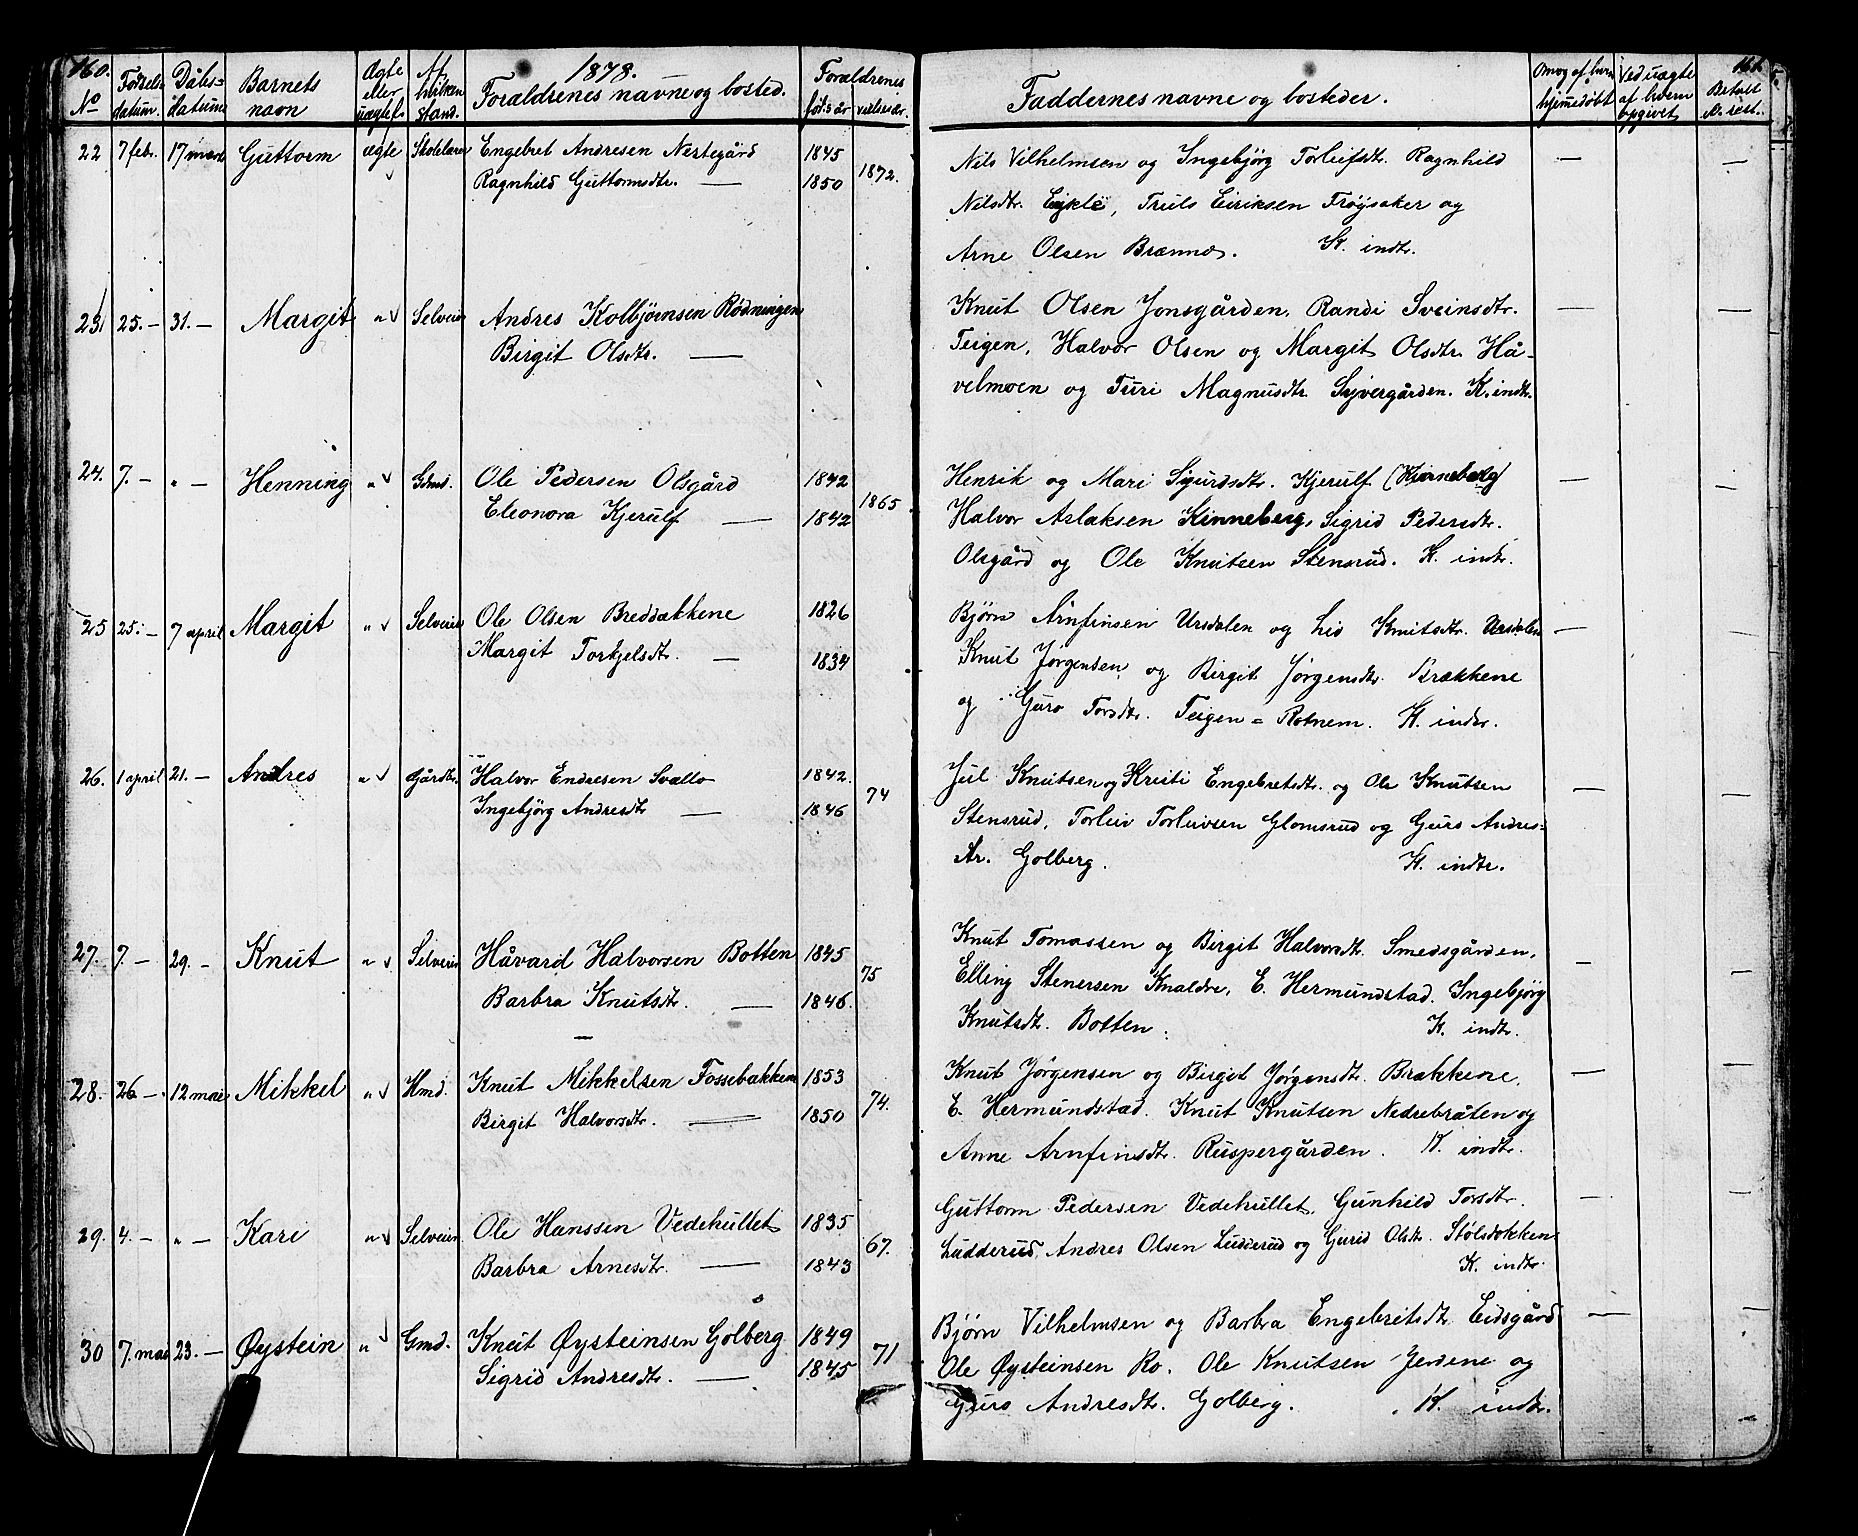 160. 1878. 161.
No Fødsels-datum. Dåbs-datum Barnets navn Ægte eller uægtef. Af hvilken stand. Forældrenes navne og bosted. Forældrenes føds.år vielsesår. Faddernes navne og bosteder. Om og af hvem hjemedøbt Ved uægte af hvem opgivet Betalt el. rest.
22 7 febr. 17 mars Guttorm ægte Skolelærer Engebret Andresen Nertegård 1845 1872. Nils Vilhelmsen og Ingebjørg Torleifsdtr. Ragnhild —
Ragnhild Guttormsdtr. — 1850 Nilsdtr. Eykle, Truls Eiriksen Frøysaker og
Arne Olsen Brænno. K. indtr.
23. 25. – 31. – Margit " Selveier Andres Kolbjørnsen Rødningen Knut Olsen Jonsgården. Randi Sveinsdtr. —
Birgit Olsdtr. — Teigen, Halvor Olsen og Margit Olsdtr. Hå-
velmoen og Turi Magnusdtr. Syvergården. K. indtr.
24. 7. – " – Henning " Gdmd. Ole Pedersen Olsgård 1842 1865 Henrik og Mari Sigurdsdtr. Kjerulf (Kinneberg) —
Eleonora Kjerulf — 1842 Halvor Aslaksen Kinneberg, Sigrid Pedersdtr.
Olsgård og Ole Knutsen Stensrud. K. indtr.
25 25. – 7 april Margit " Selveier Ole Olsen Breddækkene 1826 Bjørn Arnfinsen Ursdalen og Liv Knutsdtr. Ursdalen —
Margit Torkjelsdtr. — 1834 Knut Jørgensen og Birgit Jørgensdtr. Brækkene
og Guro Torsdtr. Teigen = Rotnem. K. indtr.
26. 1 april 21. – Andres " Gårdbr. Halvor Endresen Svello 1842. 74 Jul Knutsen og Kristi Engebretsdtr. og Ole Knutsen —
Ingebjørg Andresdtr — 1846 Stensrud, Torleiv Torleivsen Glomsrud og Guro Andres-
dtr. Golberg. K. indtr.
27. 7. – 29. – Knut " Selveier Håvard Halvorsen Botten 1845 75 Knut Tomassen og Birgit Halvorsdtr. Smedsgården, —
Barbra Knutsdtr. — 1846. Elling Stenersen Knaldre, E. Hermundstad. Ingebjørg
Knutsdtr. Botten. K. indtr.
28. 26 –. 12 mai Mikkel " Hmd. Knut Mikkelsen Fossebakken 1853 74. Knut Jørgensen og Birgit Jørgensdtr. Brækkene, —
Birgit Halvorsdtr. — 1850 E. Hermundstad. Knut Knutsen Nedrebråten og
Anne Arnfinsdtr. Ruspergården. K. indtr.
29. 4. – " – Kari " Selveier. Ole Hanssen Vedehullet 1835 67. Guttorm Pedersen Vedehullet, Gunhild Torsdtr. —
Barbra Arnesdtr. — 1843 Ludderud, Andres Olsen Ludderud og Gurid Olsdtr. Stølsdokken
K. indtr.
30 7. mai 23. – Øystein " Gmd. Knut Øysteinsen Golberg 1849 71 Bjørn Vilhelmsen og Barbra Engebretsdtr. Eidsgård —
Sigrid Andresdtr. — 1845 Ole Øysteinsen Ro. Ole Knutsen Jerdene og
Guro Andresdtr. Golberg. K. indtr.